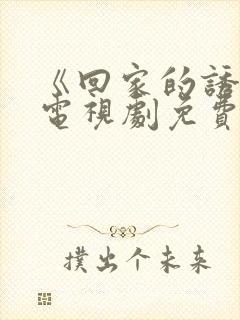 《回家的誘
電視劇免費
撲出个未来